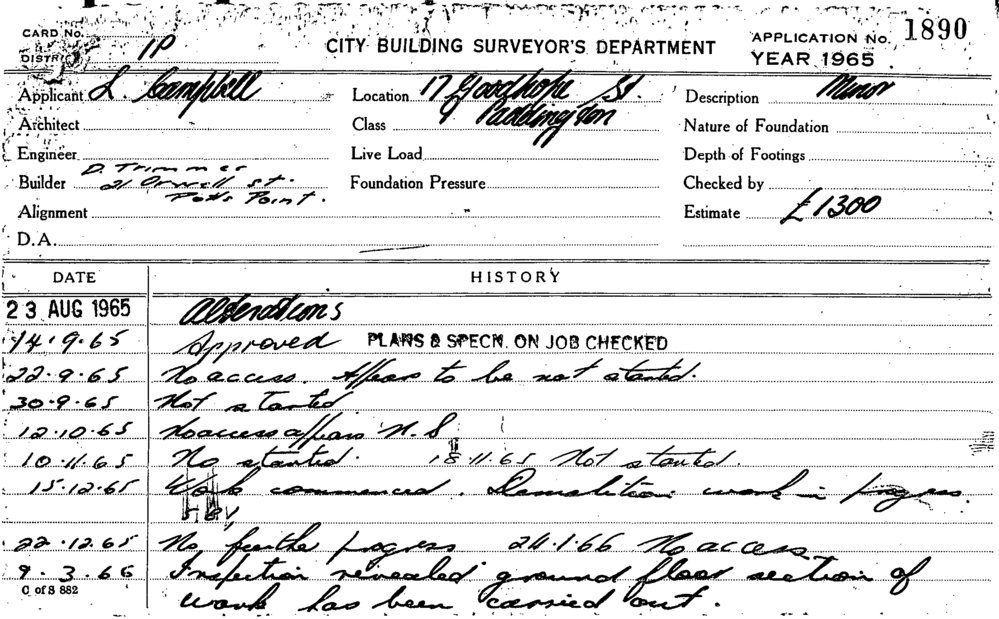 CARD No.
DISTRICT 1P
CITY BUILDING SURVEYOR'S DEPARTMENT
APPLICATION No. 1890
YEAR 1965
Applicant L. Campbell
Location 17 Goodhope St.
Paddington
Description Minor
Architect
Class
Nature of Foundation
Engineer
Live Load
Depth of Footings
Builder D. Trimmer
21 Orwell St.
Potts Point.
Foundation Pressure
Checked by
Alignment
Estimate £1300
D.A.
DATE HISTORY
23 AUG 1965 Alterations
14.9.65 Approved PLANS & SPECN. ON JOB CHECKED
22.9.65 No access. Appears to be not started.
30.9.65 Not started
12.10.65 No access appears N.S
10.11.65 No started. 18.11.65 Not started.
15.12.65 Work commenced. Demolition work in progress.
22.12.65 No further progress 24.1.66 No access.
9.3.66 Inspection revealed ground floor section of
C of S 882
work has been carried out.